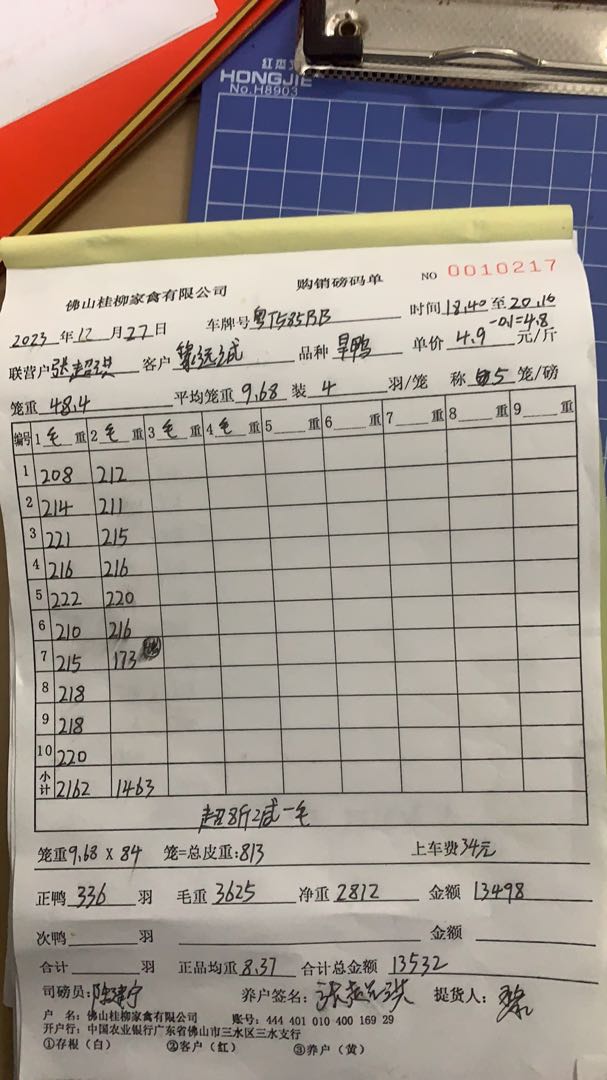 HONGJIE
No.H8903
佛山桂柳家禽有限公司 购销磅码单 NO 0010217
2023年12月27日 车牌号粤T585BB 时间18.40至20.10
联营户 客户 品种旱鸭 单价4.9-0.1=4.8元/斤
笼重48.4 平均笼重9.68装4羽/笼 称5笼/磅
编号 1毛重 2毛重 3毛重 4毛重 5重 6重 7重 8重 9重
1 208 212
2 214 211
3 221 215
4 216 216
5 222 220
6 210 216
7 215 173
8 218
9 218
10 220
小计 2162 1463
超8斤2减一毛
笼重9.68X84 笼=总皮重:813 上车费34元
正鸭336羽 毛重3625 净重2812 金额13498
次鸭羽 金额
合计羽 正品均重8.37 合计总金额13532
司磅员: 养户签名: 提货人:
户 名：佛山桂柳家禽有限公司 账号：444 401 010 400 169 29
开户行：中国农业银行广东省佛山市三水区三水支行
①存根（白） ②客户（红） ③养户（黄）